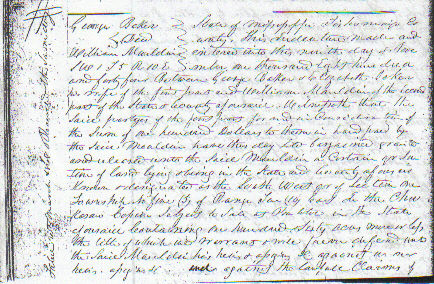 George Baker } State of Mississippi Tishomingo Co
& Deed } unty. This indenture made and
William Mauldin } entered into this ninth day of June
S W 1 T5 R10E } one thousand Eight hundred
and forty four Between George Baker & Elizabeth Baker
his wife of the first part and William Mauldin of the second
part of the State & County aforesaid. Witnesseth that the
Said partys of the first part for and in Consideration of
the Sum of one hundred Dollars to them in hand paid by
the Said Mauldin have this day bargained granted
and released unto the Said Mauldin a Certain qr Sec
tion of land lying & being in the State and County aforesaid
Known & designated as the South West qr of Section one
Township No five (5) of Range Ten (10) East in the Chic
kasaw Subject to Sale at in the State
aforesaid Containing one hundred Sixty acres more or less
the title of which we warrant & will forever defend unto
the Said Mauldin his heirs & assigns against us our
heirs assigns & and against the Claims of